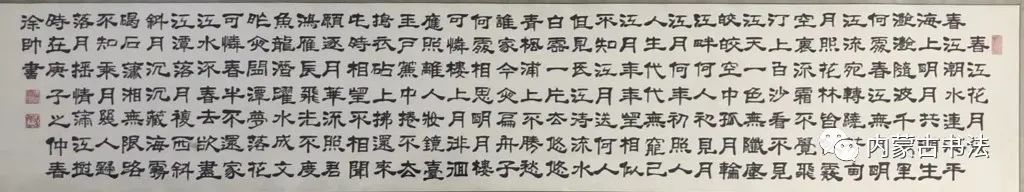 春江花月夜
春江潮水連海平
海上明月共潮生
灩灩隨波千萬里
何處春江無月明
江流宛轉繞芳甸
月照花林皆似霰
空裏流霜不覺飛
汀上白沙看不見
江天一色無纖塵
皎皎空中孤月輪
江畔何人初見月
江月何年初照人
人生代代無窮已
江月年年望相似
不知江月待何人
但見長江送流水
白雲一片去悠悠
青楓浦上不勝愁
誰家今夜扁舟子
何處相思明月樓
可憐樓上月徘洄
應照離人妝鏡臺
玉戶簾中捲不去
搗衣砧上拂還來
此時相望不相聞
願逐月華流照君
鴻雁長飛光不度
魚龍潛躍水成文
昨夜閑潭夢落花
可憐春半不還家
江水流春去欲盡
江潭落月複西斜
斜月沉沉藏海霧
碣石瀟湘無限路
不知乘月幾人歸
落月搖情滿江樹
時在庚子之仲春
徐帥書
内蒙古书法